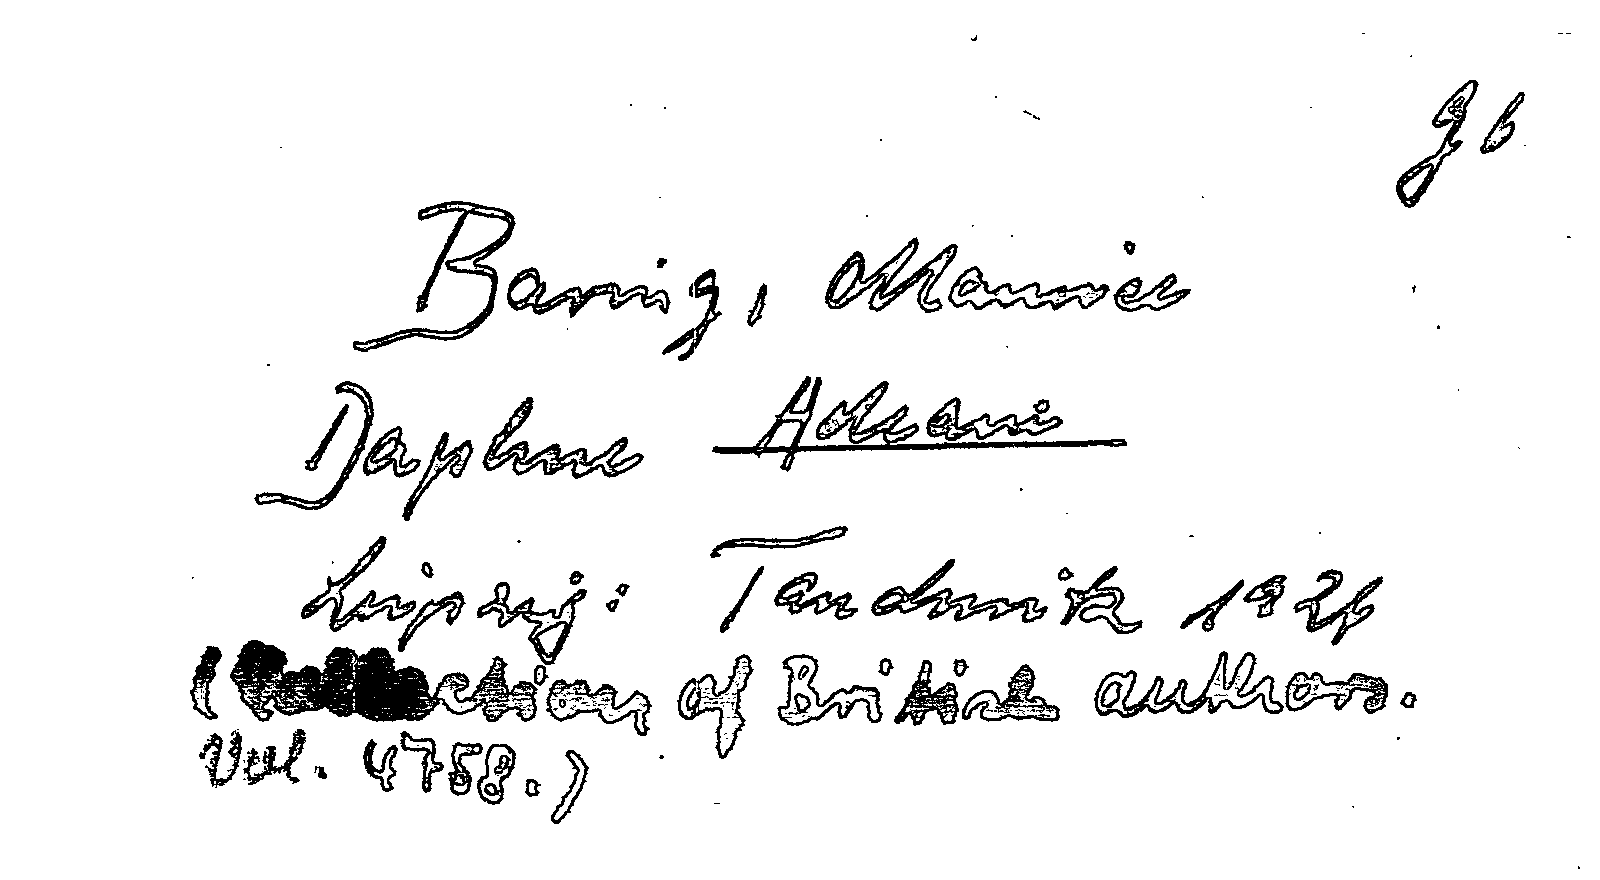 g b
Baring, Maurice
Daphne Adeani
Leipzig: Tauchnitz 1926
(Collection of British authors.
Vol. 4758.)